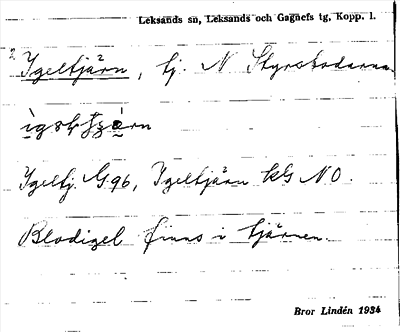 Leksands sn, Leksands och Gagnefs tg, Kopp. l.
Igeltjärn, tj. N Styrsbodarna
Igeltj. G96, Igeltjärn kG NO.
Blodigel finns i tjärnen.
Bror Lindén 1934